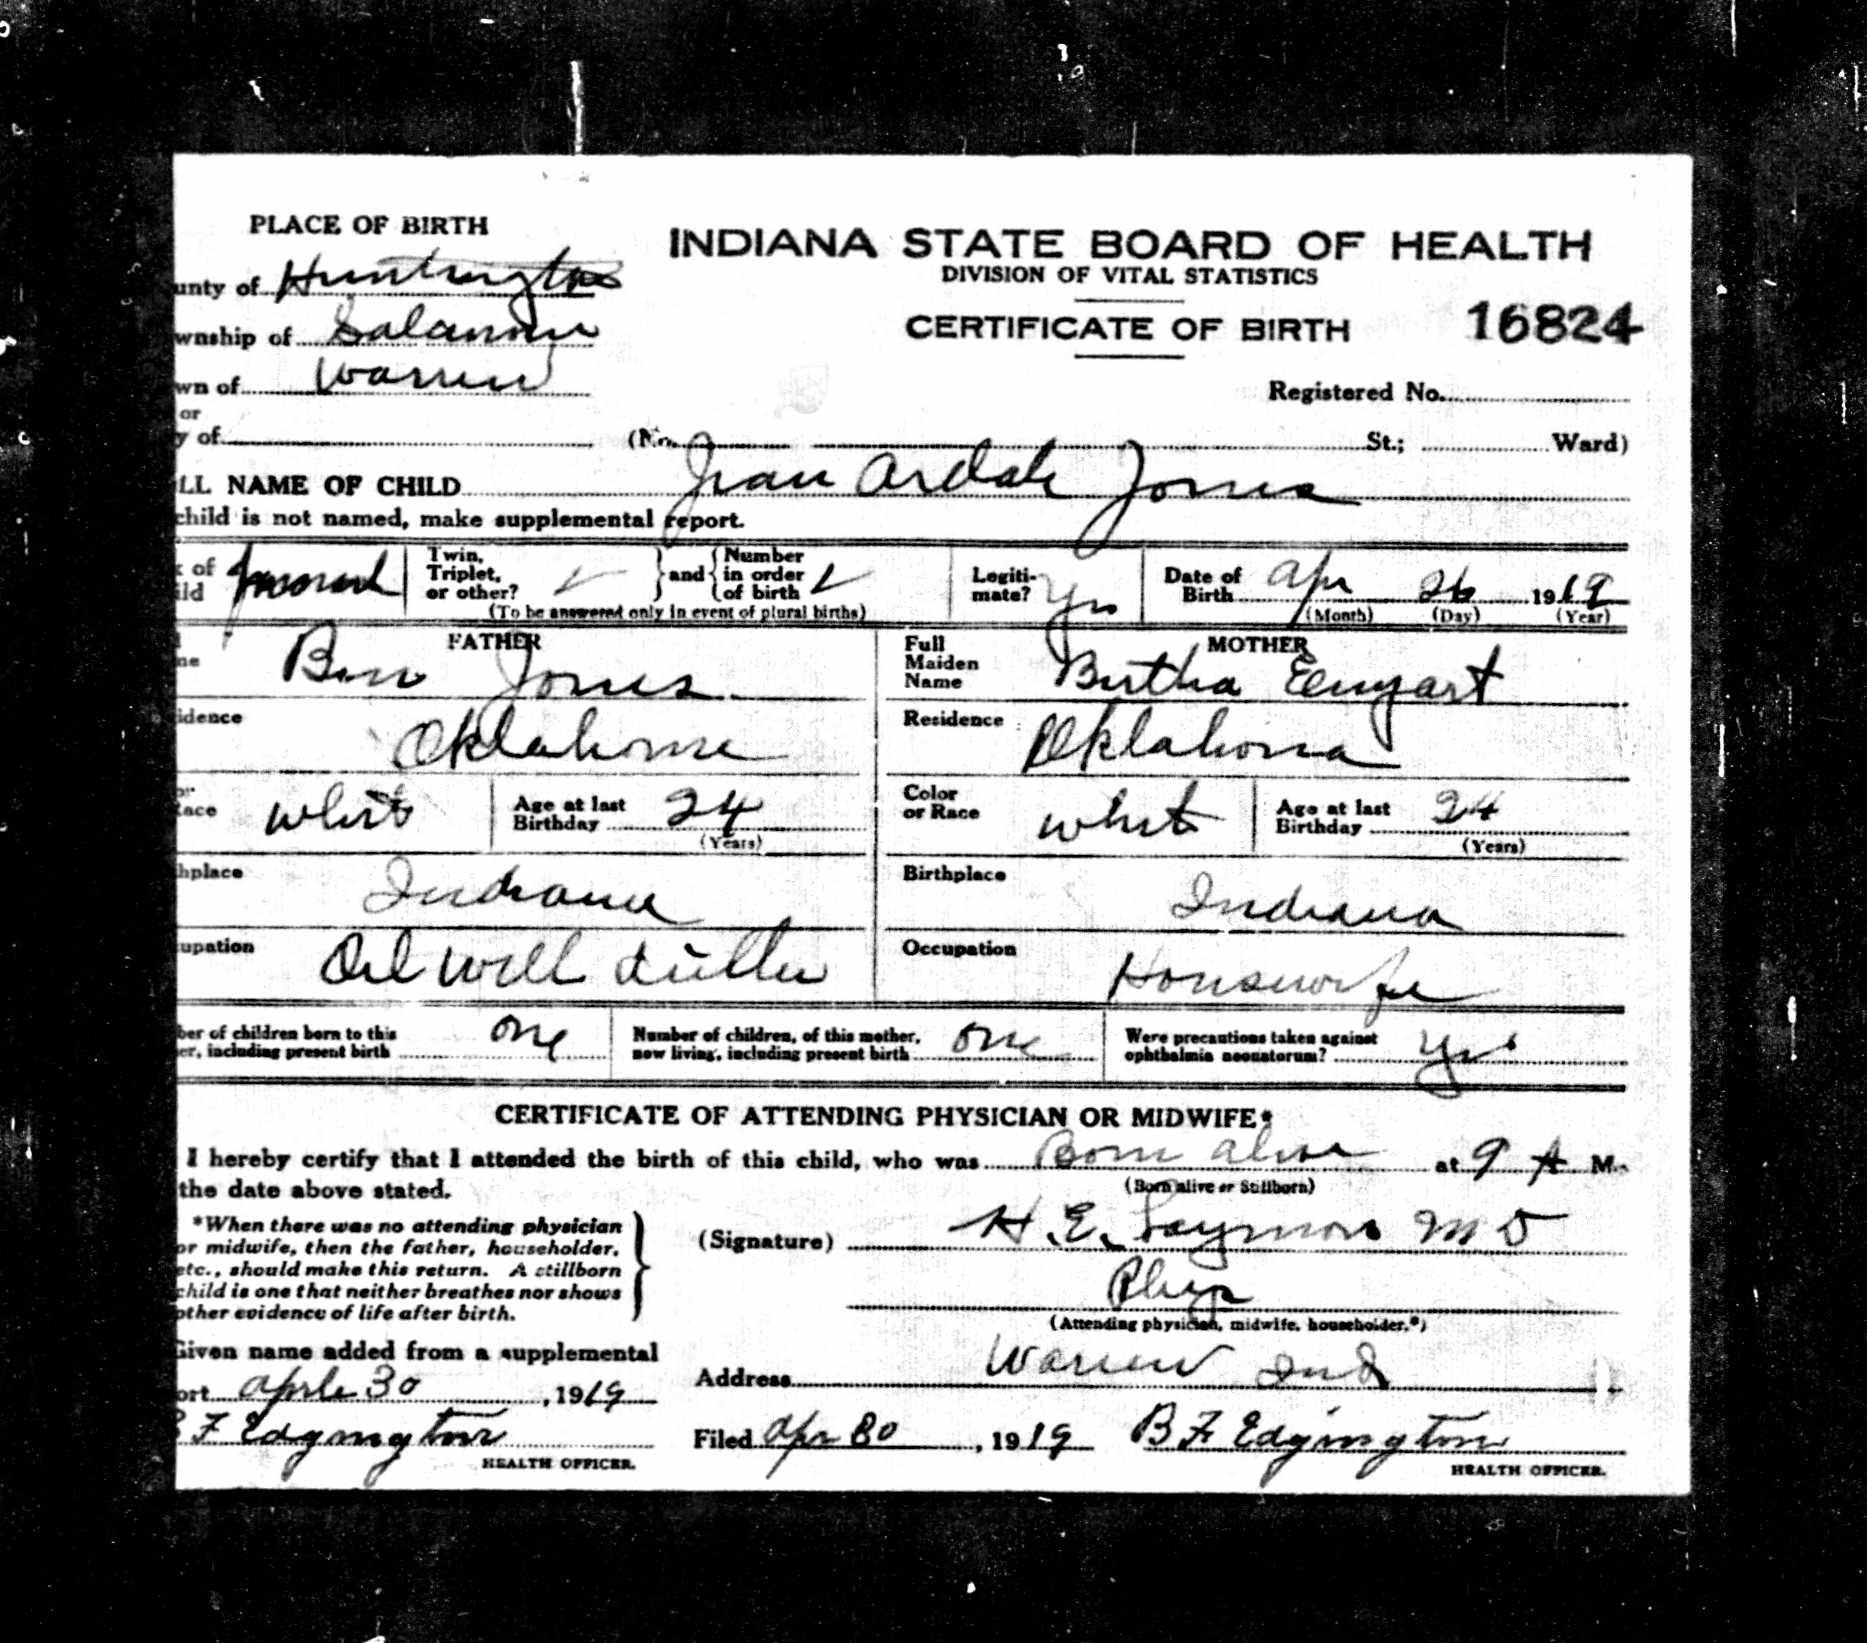 PLACE OF BIRTH
unty of Huntington
wnship of Salamonie
wn of Warren
or
y of
INDIANA STATE BOARD OF HEALTH
DIVISION OF VITAL STATISTICS
CERTIFICATE OF BIRTH
16824
Registered No.
(No. St.; Ward)
LL NAME OF CHILD Jean Ardale Jones
child is not named, make supplemental report.
of
ild
Twin, Triplet, or other?
and
Number in order of birth
(To be answered only in event of plural births)
Legiti-mate? Yes
Date of Birth Apr 26 1919
(Month) (Day) (Year)
FATHER
me Ben Jones
idence Oklahoma
or
Race White
Age at last Birthday 24
(Years)
hplace Indiana
upation Oil Well Driller
MOTHER
Full Maiden Name Bertha Enyart
Residence Oklahoma
Color or Race White
Age at last Birthday 24
(Years)
Birthplace Indiana
Occupation Housewife
ber of children born to this
er, including present birth one
Number of children, of this mother,
now living, including present birth one
Were precautions taken against
ophthalmia neonatorum? yes
CERTIFICATE OF ATTENDING PHYSICIAN OR MIDWIFE*
I hereby certify that I attended the birth of this child, who was Born alive at 9 A M.
(Born alive or Stillborn)
the date above stated.
*When there was no attending physician
or midwife, then the father, householder,
etc., should make this return. A stillborn
child is one that neither breathes nor shows
other evidence of life after birth.
(Signature) H. E. MD
Phys
(Attending physician, midwife, householder.*)
Given name added from a supplemental
ort Aprile 30, 1919
F Edgington
HEALTH OFFICER.
Address Warren Ind
Filed Apr 30, 1919 B F Edgington
HEALTH OFFICER.